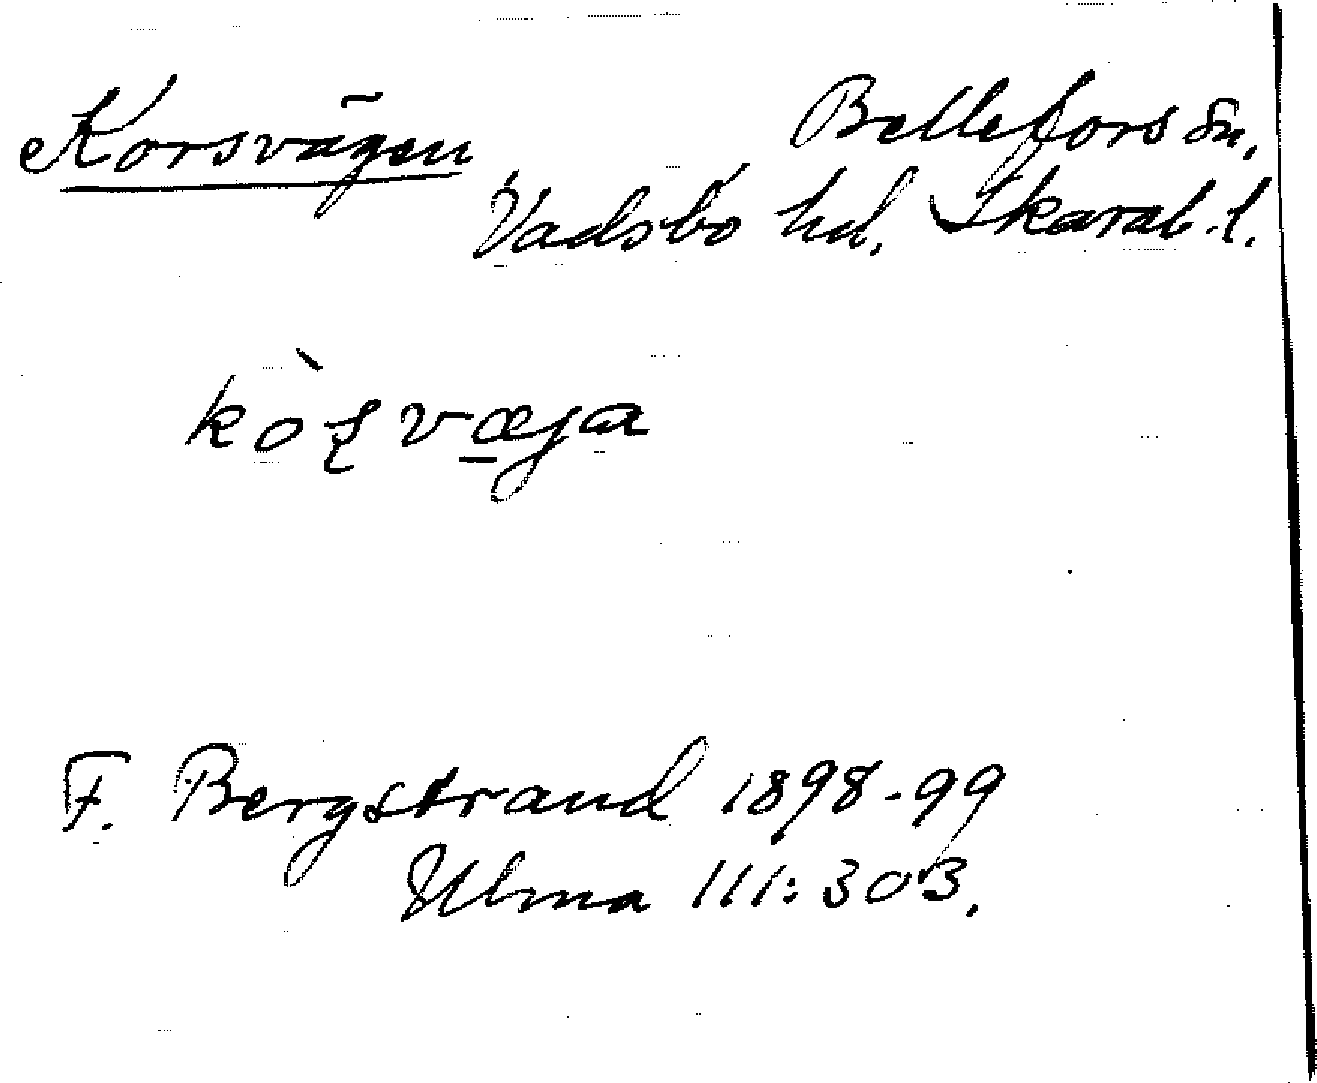 Korsvägen Bellefors sn.
Vadsbo hd. Skarab. l.
kò̀ʂvæja
F. Bergstrand 1898-99
Ulma 111:303.